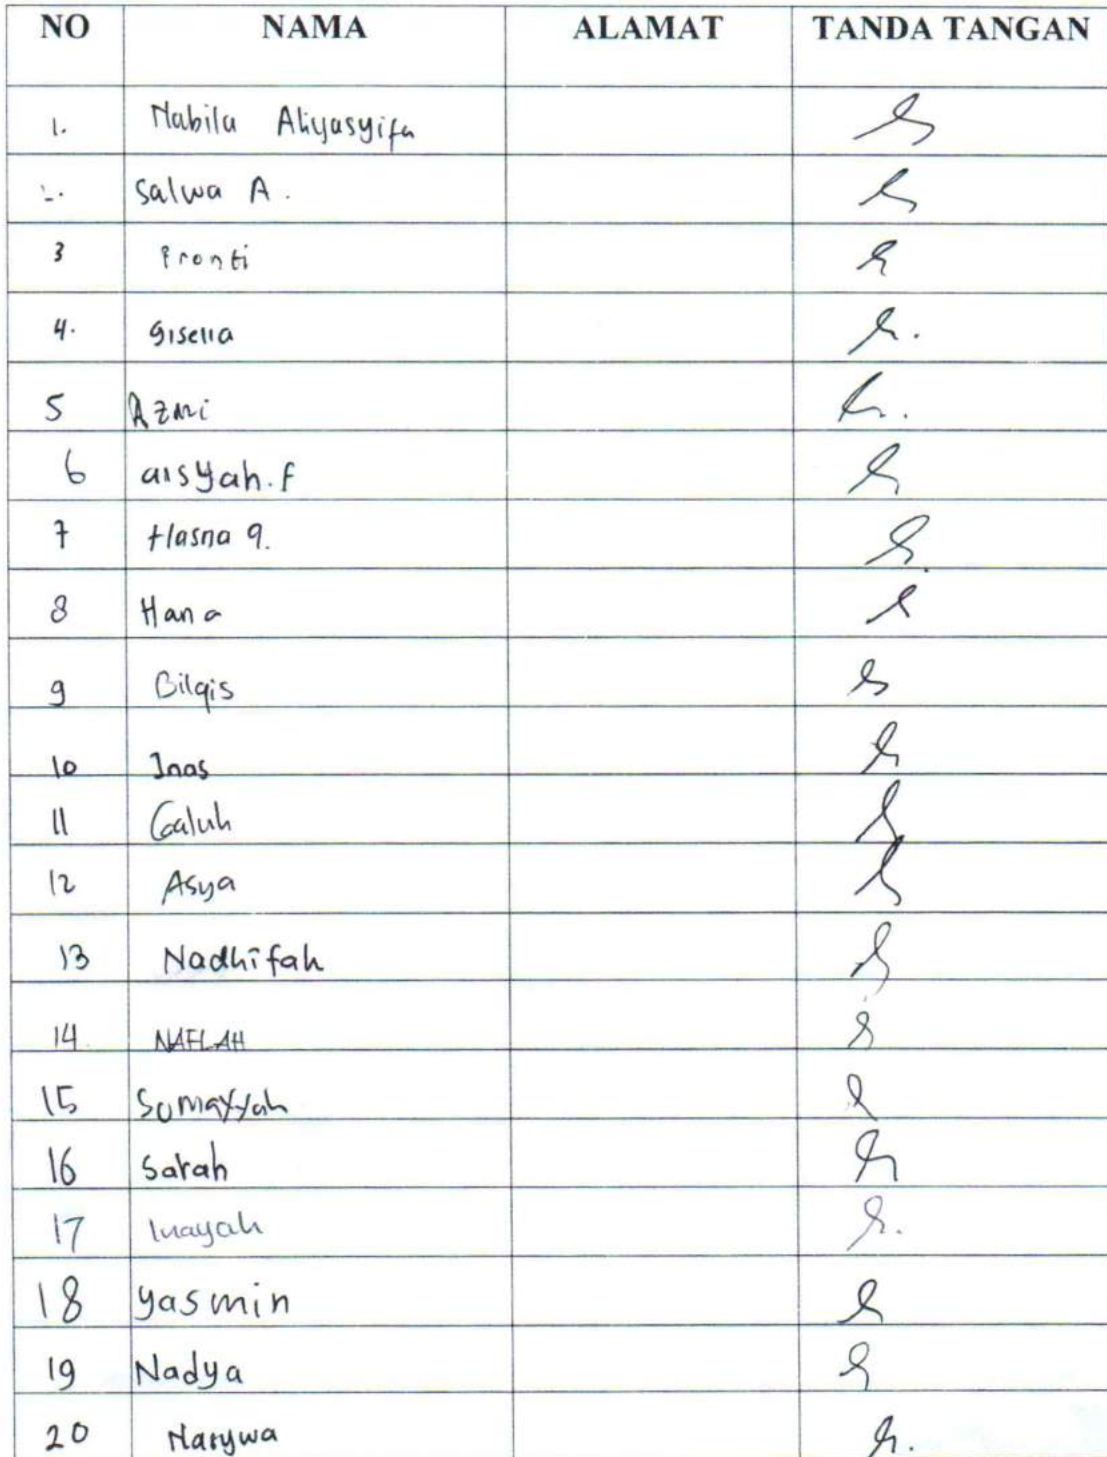 NO NAMA ALAMAT TANDA TANGAN
1. Nabila Aliyasyifa
2. Salwa A.
3 Pronti
4. Gisella
5 Azmi
6 aisyah.f
7 Hasna q.
8 Hana
9 Bilqis
10 Inas
11 Galuh
12 Asya
13 Nadhifah
14. NAFLAH
15 Sumayyah
16 Sarah
17 Inayah
18 yasmin
19 Nadya
20